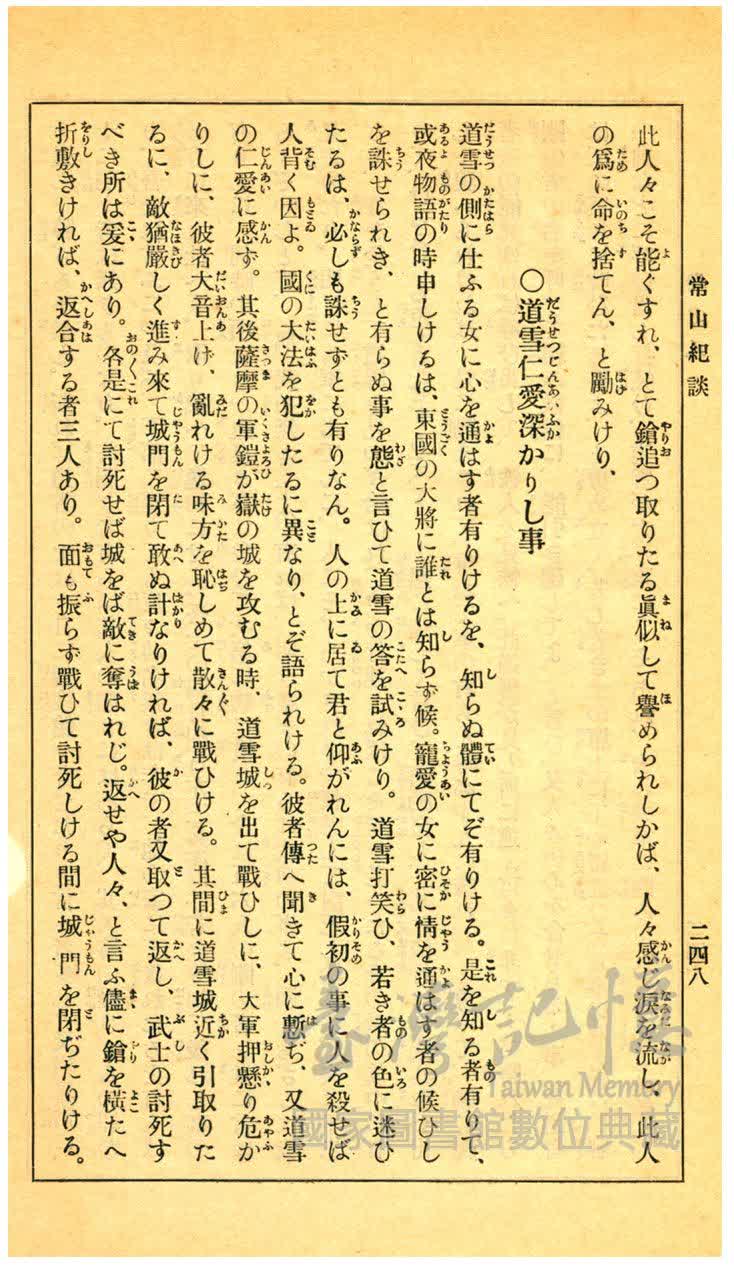 常山紀談
二四八
此人々こそ能ぐすれ、とて鎗追つ取りたる眞似して譽められしかば、人々感じ淚を流し、此人
の爲に命を捨てん、と勵みけり、
〇道雪仁愛深かりし事
道雪の側に仕ふる女に心を通はす者有りけるを、知らぬ體にてぞ有りける。是を知る者有りて、
或夜物語の時申しけるは、東國の大將に誰とは知らず候。寵愛の女に密に情を通はす者の候ひし
を誅せられき、と有らぬ事を態と言ひて道雪の答を試みけり。道雪打笑ひ、若き者の色に迷ひ
たるは、必しも誅せずとも有りなん。人の上に居て君と仰がれんには、假初の事に人を殺せば
人背く因よ。國の大法を犯したるに異なり、とぞ語られける。彼者傳へ聞きて心に慙ぢ、又道雪
の仁愛に感ず。其後薩摩の軍鎧が嶽の城を攻むる時、道雪城を出て戰ひしに、大軍押懸り危か
りしに、彼者大音上げ、亂れける味方を恥しめて散々に戰ひける。其間に道雪城近く引取りた
るに、敵猶嚴しく進み來て城門を閉て敢ぬ計なりければ、彼の者又取つて返し、武士の討死す
べき所は爰にあり。各是にて討死せば城をば敵に奪はれじ。返せや人々、と言ふ儘に鎗を橫たへ
折敷きければ、返合する者三人あり。面も振らず戰ひて討死しける間に城門を閉ぢたりける。
臺灣記憶
Taiwan Memory
國家圖書館數位典藏